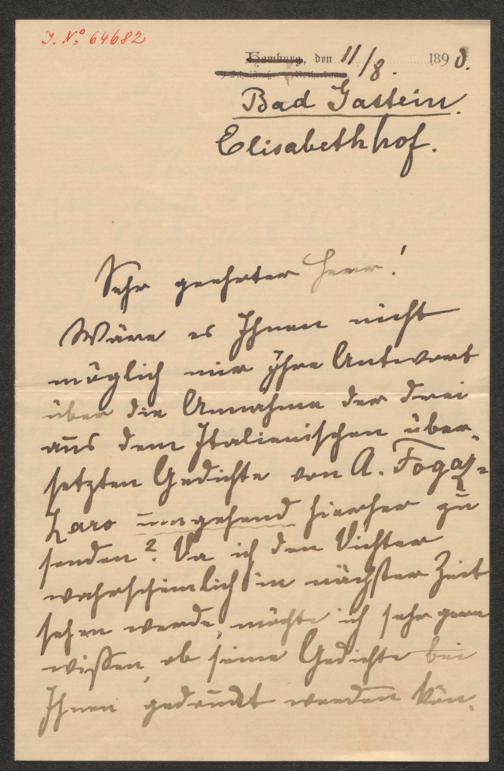 J. Nº 64682
Hamburg, den 11/8. 1898.
Bad Gastein.
Elisabethhof.
Sehr geehrter Herr!
Wäre es Ihnen nicht
möglich mir Ihre Antwort
über die Annahme der drei
aus dem Italienischen über-
setzten Gedichte von A. Fogaz-
zaro umgehend hierher zu
senden? Da ich den Dichter
wahrscheinlich in nächster Zeit
sehen werde, möchte ich sehr gern
wissen, ob seine Gedichte bei
Ihnen gedruckt werden kön-